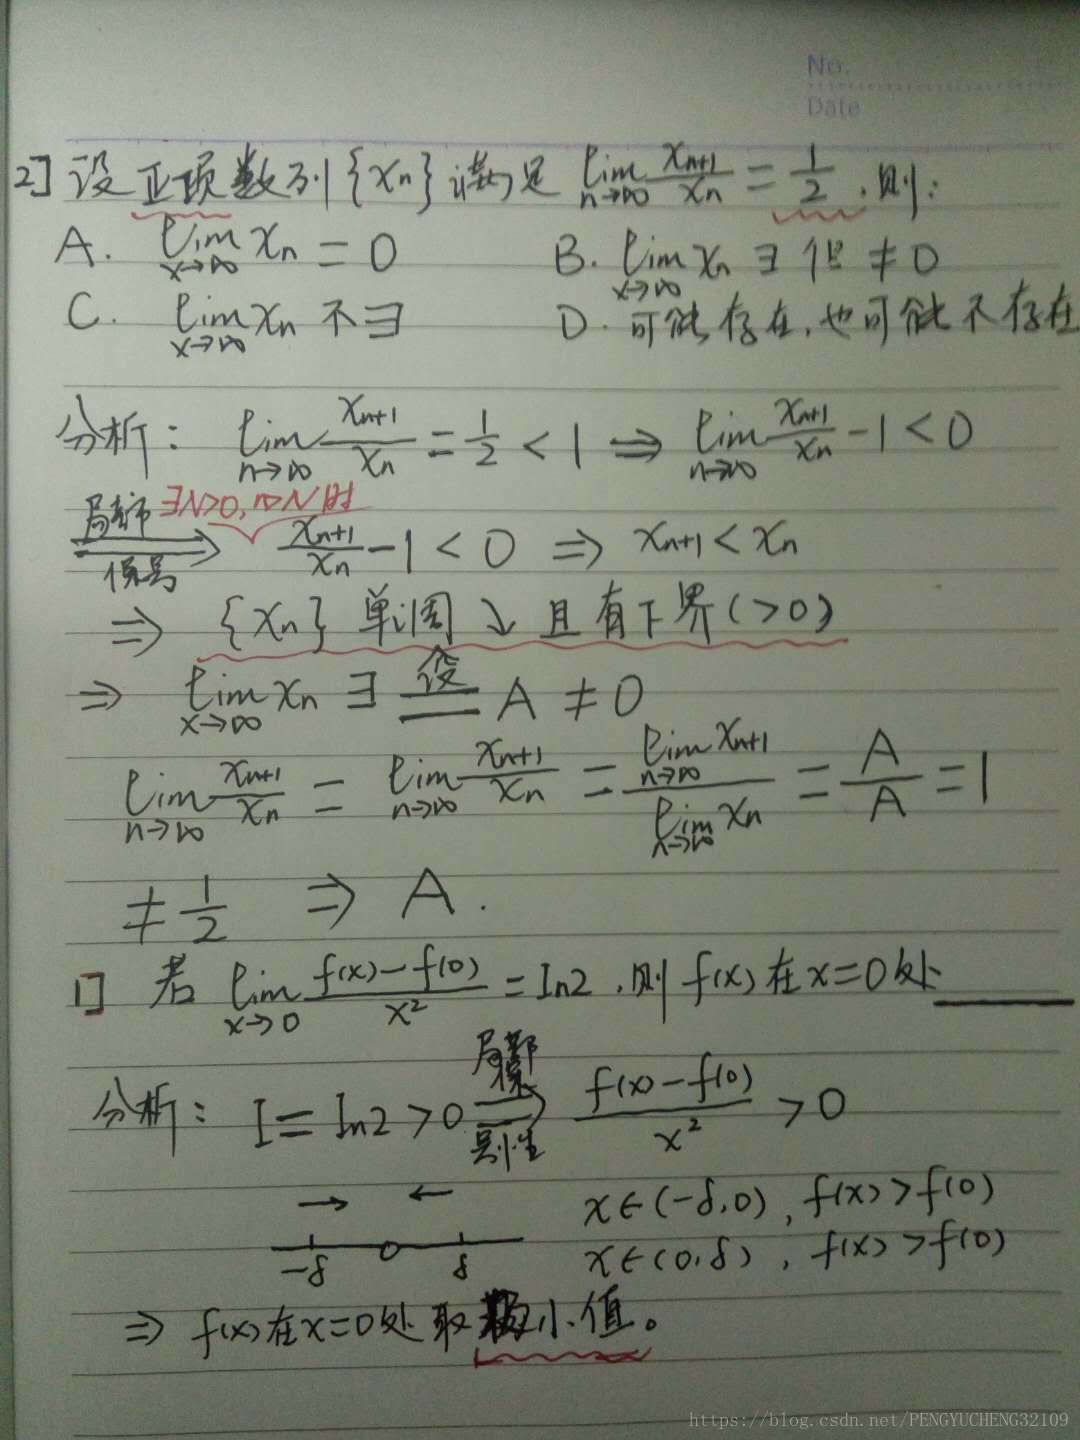 No.
Date
2] 设正项数列{xₙ}满足 lim_{n→∞} xₙ₊₁/xₙ = 1/2, 则:
A. lim_{x→∞} xₙ = 0  B. lim_{x→∞} xₙ ∃ 但 ≠ 0
C. lim_{x→∞} xₙ 不∃  D. 可能存在, 也可能不存在
分析: lim_{n→∞} xₙ₊₁/xₙ = 1/2 < 1 ⇒ lim_{n→∞} xₙ₊₁/xₙ - 1 < 0
局部保号 ⇒ ∃N>0, n>N时 xₙ₊₁/xₙ - 1 < 0 ⇒ xₙ₊₁ < xₙ
⇒ {xₙ} 单调↘且有下界(>0)
⇒ lim_{x→∞} xₙ ∃ 设= A ≠ 0
lim_{n→∞} xₙ₊₁/xₙ = lim_{n→∞} xₙ₊₁/xₙ = lim_{n→∞} xₙ₊₁ / lim_{x→∞} xₙ = A/A = 1
≠ 1/2 ⇒ A.
1] 若 lim_{x→0} (f(x)-f(0))/x² = ln2, 则f(x)在x=0处____
分析: I = ln2 > 0 局部保号性 ⇒ (f(x)-f(0))/x² > 0
→ ← x∈(-δ,0), f(x)>f(0)
-δ 0 δ x∈(0,δ), f(x)>f(0)
⇒ f(x)在x=0处取极小值。
https://blog.csdn.net/PENGYUCHENG32109